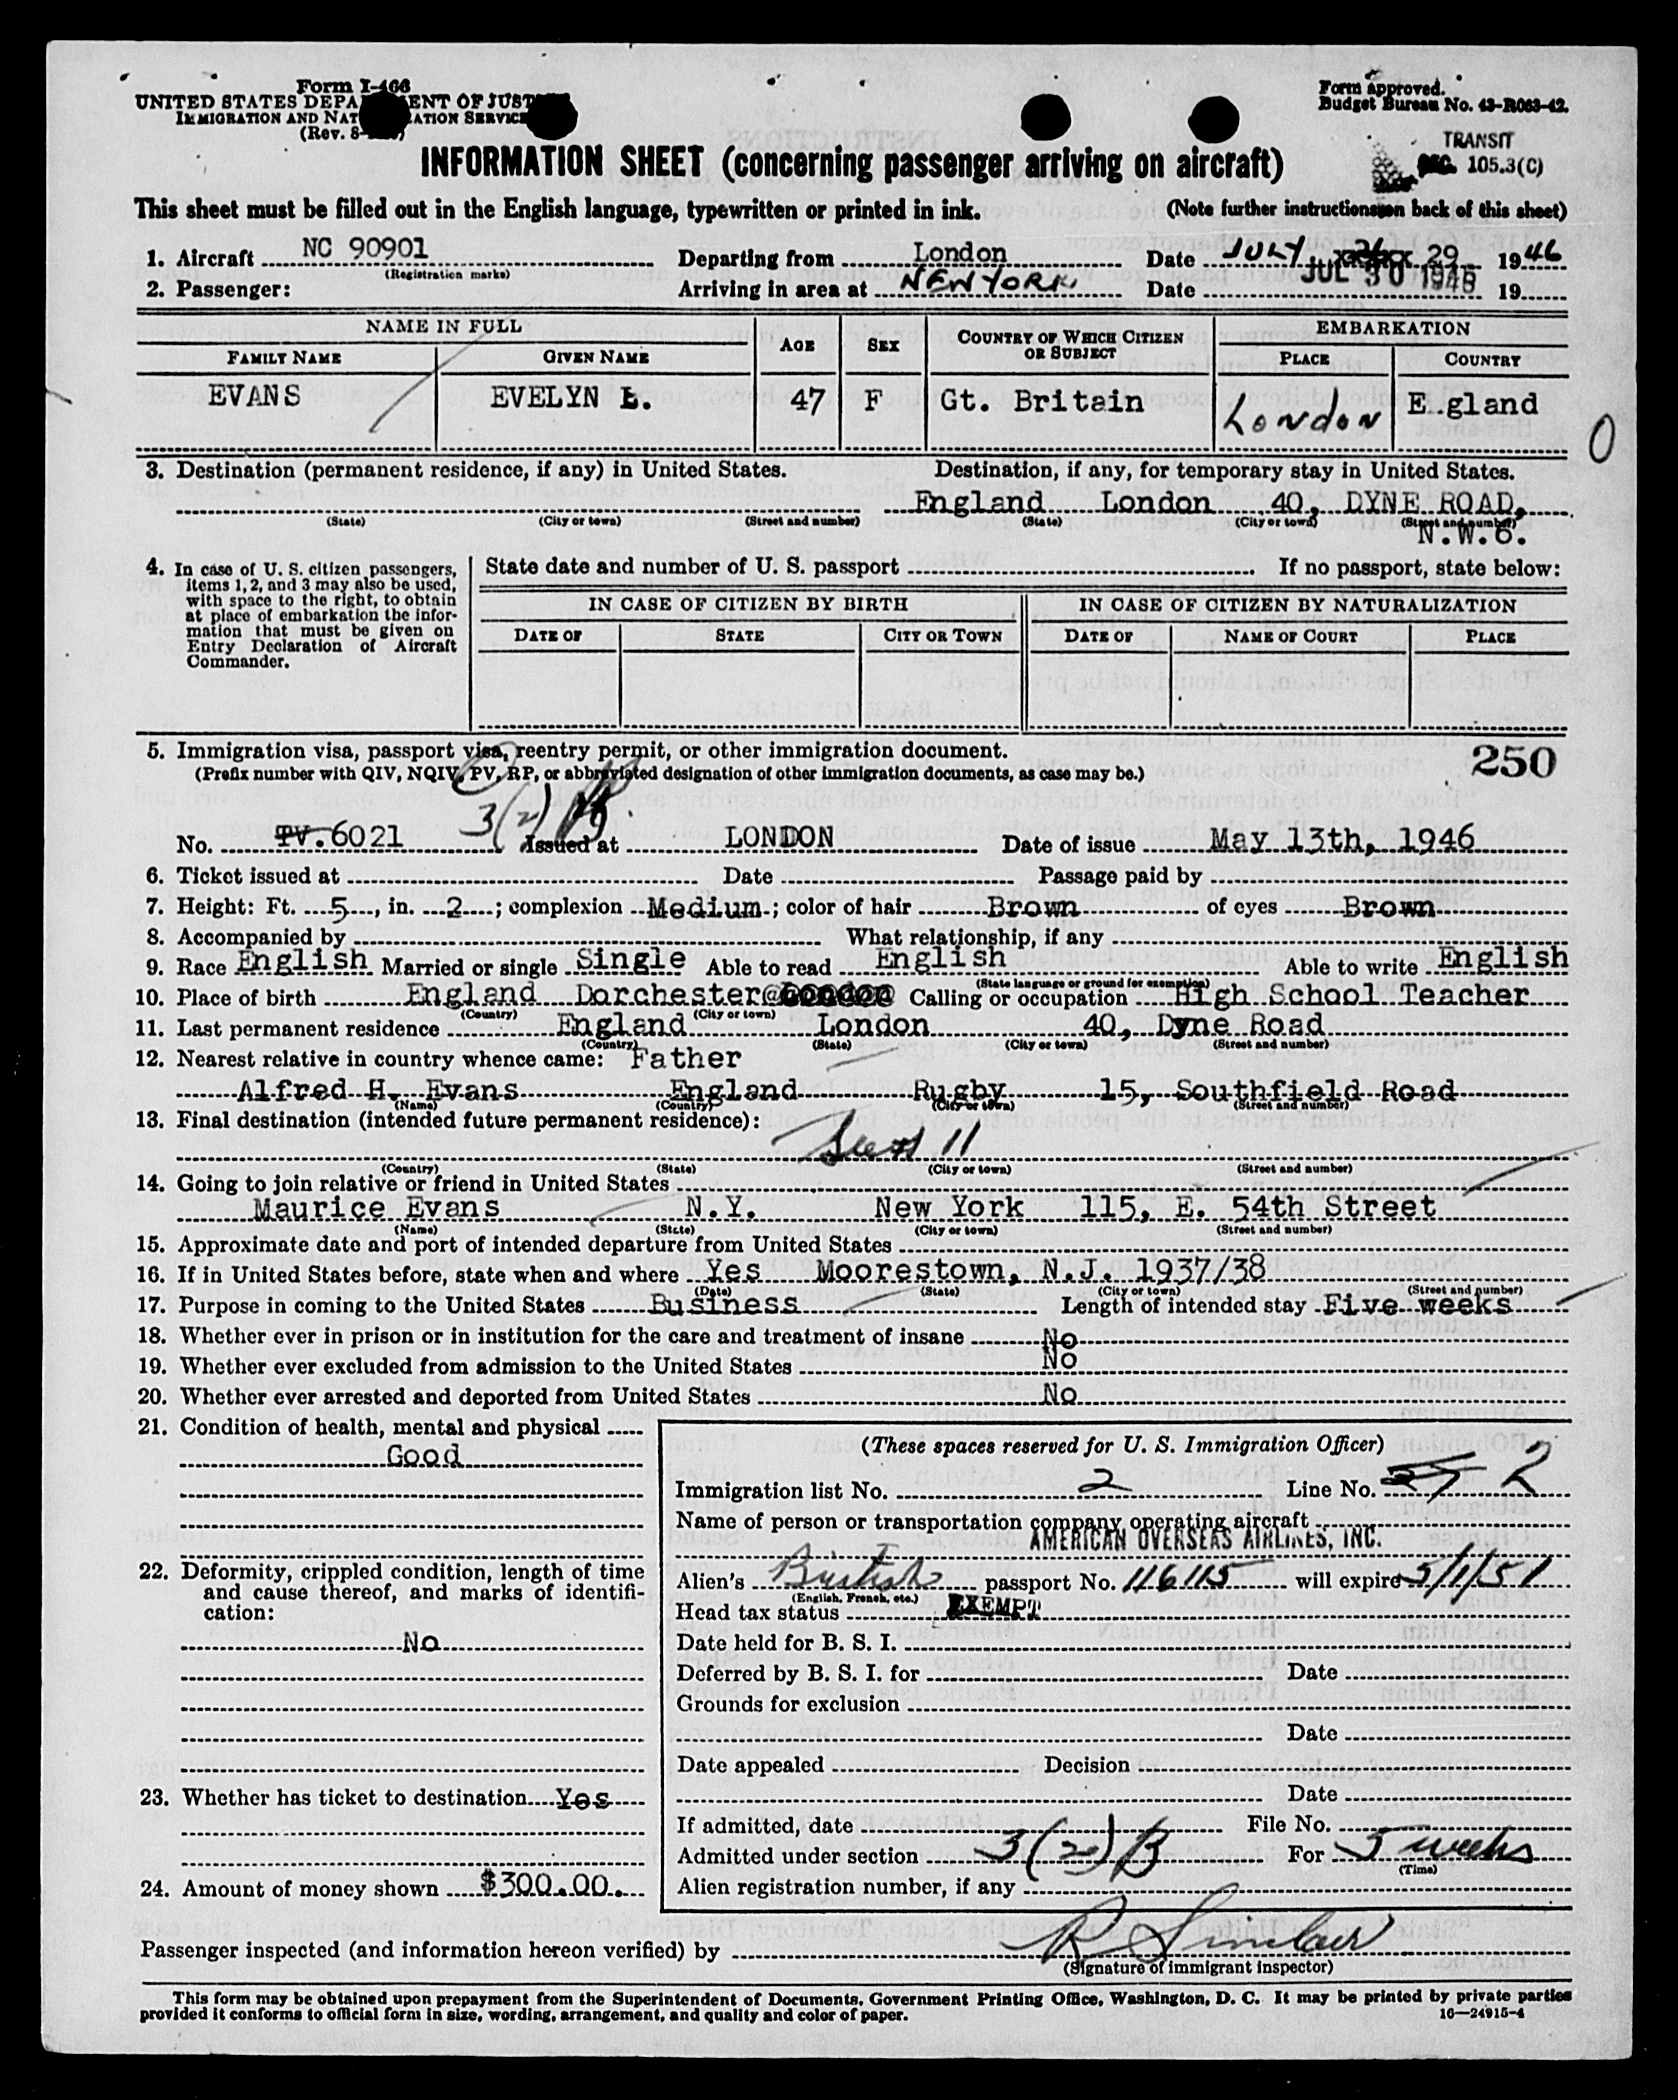 Form I-466
UNITED STATES DEPA ENT OF JUST
IMMIGRATION AND NAT ATION SERVICE
(Rev. 8-
Form approved.
Budget Bureau No. 43-R063-42.
TRANSIT
SEC. 105.3(C)
INFORMATION SHEET (concerning passenger arriving on aircraft)
This sheet must be filled out in the English language, typewritten or printed in ink. (Note further instructions on back of this sheet)
1. Aircraft NC 90901 Departing from London Date JULY 29 1946
(Registration marks)
2. Passenger: Arriving in area at NEW YORK Date JUL 30 1946 19
NAME IN FULL AGE SEX COUNTRY OF WHICH CITIZEN OR SUBJECT EMBARKATION
FAMILY NAME GIVEN NAME PLACE COUNTRY
EVANS EVELYN L. 47 F Gt. Britain London E.gland
0
3. Destination (permanent residence, if any) in United States. Destination, if any, for temporary stay in United States.
England London 40, DYNE ROAD,
(State) (City or town) (Street and number) (State) (City or town) (Street and number)
N.W.6.
4. In case of U. S. citizen passengers, items 1, 2, and 3 may also be used, with space to the right, to obtain at place of embarkation the information that must be given on Entry Declaration of Aircraft Commander.
State date and number of U. S. passport If no passport, state below:
IN CASE OF CITIZEN BY BIRTH IN CASE OF CITIZEN BY NATURALIZATION
DATE OF STATE CITY OR TOWN DATE OF NAME OF COURT PLACE
5. Immigration visa, passport visa, reentry permit, or other immigration document. 250
(Prefix number with QIV, NQIV, PV, RP, or abbreviated designation of other immigration documents, as case may be.)
3(2)B
No. PV.6021 Issued at LONDON Date of issue May 13th, 1946
6. Ticket issued at Date Passage paid by
7. Height: Ft. 5, in. 2; complexion Medium; color of hair Brown of eyes Brown
8. Accompanied by What relationship, if any
9. Race English Married or single Single Able to read English Able to write English
(State language or ground for exemption)
10. Place of birth England Dorchester Calling or occupation High School Teacher
(Country) (City or town)
11. Last permanent residence England London 40, Dyne Road
(Country) (State) (City or town) (Street and number)
12. Nearest relative in country whence came: Father
Alfred H. Evans England Rugby 15, Southfield Road
(Name) (Country) (City or town) (Street and number)
13. Final destination (intended future permanent residence):
11
(Country) (State) (City or town) (Street and number)
14. Going to join relative or friend in United States
Maurice Evans N.Y. New York 115, E. 54th Street
(Name) (State) (City or town) (Street and number)
15. Approximate date and port of intended departure from United States
16. If in United States before, state when and where Yes Moorestown, N.J. 1937/38
(Date) (State) (City or town) (Street and number)
17. Purpose in coming to the United States Business Length of intended stay Five weeks
18. Whether ever in prison or in institution for the care and treatment of insane No
19. Whether ever excluded from admission to the United States No
20. Whether ever arrested and deported from United States No
21. Condition of health, mental and physical
Good
22. Deformity, crippled condition, length of time and cause thereof, and marks of identification:
No
23. Whether has ticket to destination Yes
24. Amount of money shown $300.00.
(These spaces reserved for U. S. Immigration Officer)
Immigration list No. 2 Line No. 2
Name of person or transportation company operating aircraft
AMERICAN OVERSEAS AIRLINES, INC.
Alien's British passport No. 116115 will expire 5/1/51
(English, French, etc.)
Head tax status EXEMPT
Date held for B. S. I.
Deferred by B. S. I. for Date
Grounds for exclusion
Date
Date appealed Decision
Date
If admitted, date File No.
Admitted under section 3(2)B For 5 weeks
(Time)
Alien registration number, if any
Passenger inspected (and information hereon verified) by R Sinclair
(Signature of immigrant inspector)
This form may be obtained upon prepayment from the Superintendent of Documents, Government Printing Office, Washington, D. C. It may be printed by private parties
provided it conforms to official form in size, wording, arrangement, and quality and color of paper. 16—24915-4